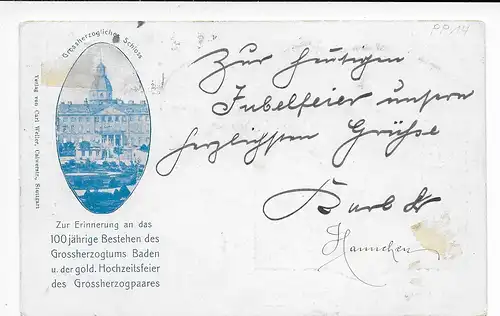 PP14
Grossherzogliches Schloss
Verlag von Carl Weller, Stuttgart
Zur Erinnerung an das
100 jährige Bestehen des
Grossherzogtums Baden
u. der gold. Hochzeitsfeier
des Grossherzogpaares
Zur heutigen
Jubelfeier unsern
herzlichsten Grüsse
Hannchen